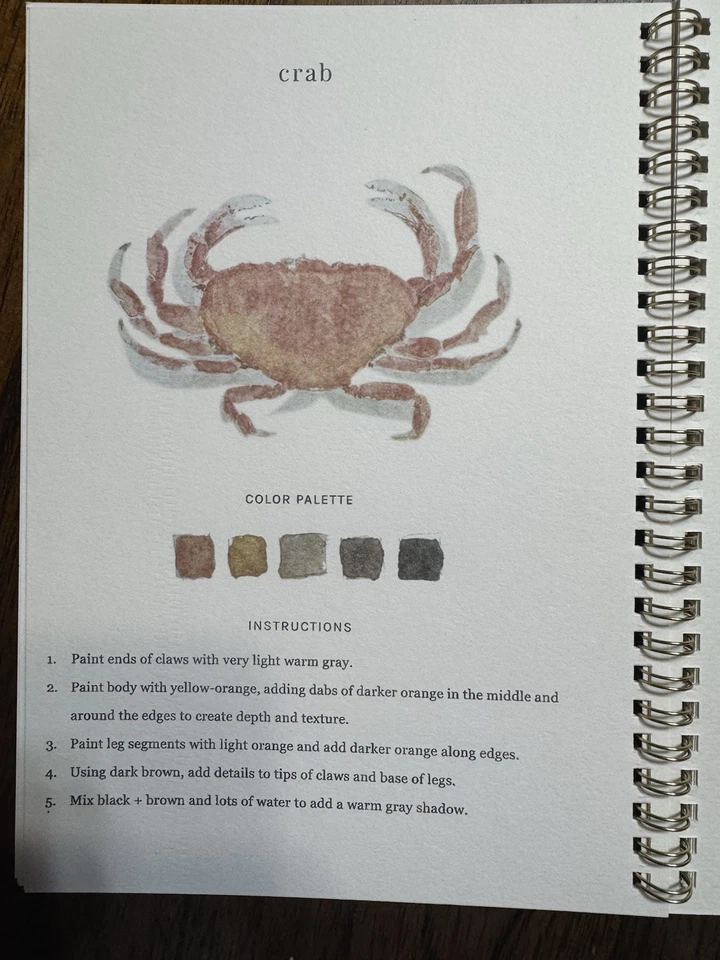 crab
COLOR PALETTE
INSTRUCTIONS
1. Paint ends of claws with very light warm gray.
2. Paint body with yellow-orange, adding dabs of darker orange in the middle and
around the edges to create depth and texture.
3. Paint leg segments with light orange and add darker orange along edges.
4. Using dark brown, add details to tips of claws and base of legs.
5. Mix black + brown and lots of water to add a warm gray shadow.